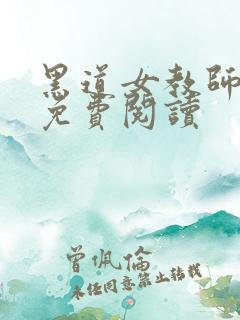 黑道女教師
免費閱讀
曾佩倫
未任同意禁止轉載